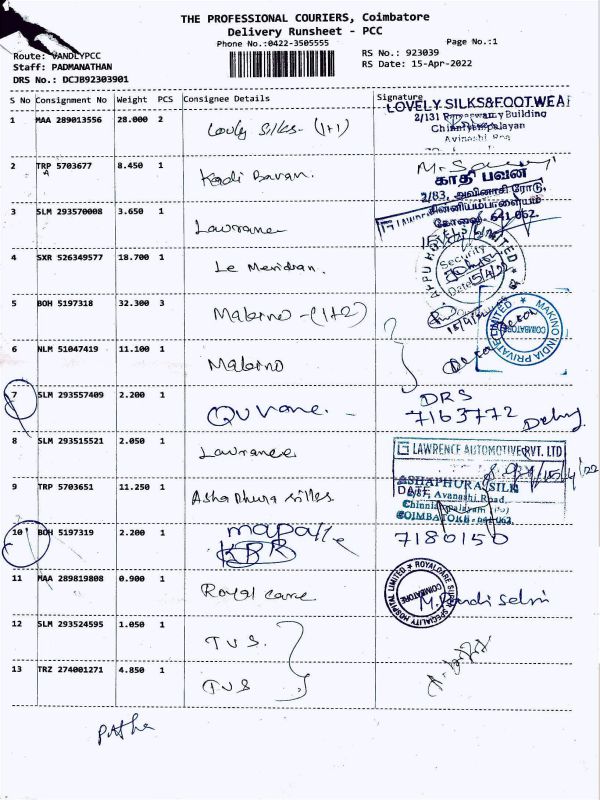 THE PROFESSIONAL COURIERS, Coimbatore
Delivery Runsheet - PCC
Phone No.:0422-3505555
Page No.:1
Route: VANDLYPCC
RS No.: 923039
Staff: PADMANATHAN
RS Date: 15-Apr-2022
DRS No.: DCJB92303901
S No Consignment No Weight PCS Consignee Details Signature
LOVELY SILKS&FOOTWEAR
1 MAA 289013556 28.000 2 Lovly Silks - (1+1)
2/131 Ramaswamy Building
Chinniyampalayan
Avinashi Roa
2 TRP 5703677 8.450 1 Kadi Bavan.
காதி பவன்
2/83, அவினாசி ரோடு,
சின்னியம்பாளையம்
கோவை- 641 062.
3 SLM 293570008 3.650 1 Lawrance
4 SXR 526349577 18.700 1 Le Meridian.
Security
Date 15/4/22
5 BOH 5197318 32.300 3 Makino - (1+2)
MAKINO INDIA PRIVATE LIMITED
COIMBATORE
6 NLM 51047419 11.100 1 Makino
7 SLM 293557409 2.200 1
DRS
7163772
8 SLM 293515521 2.050 1 Lawrance
LAWRENCE AUTOMOTIVE PVT. LTD
DATE
9 TRP 5703651 11.250 1 Ashaphura silks
ASHAPHURA SILK
Avanashi Road,
Chinniampalayam (PO)
COIMBATORE - 641 062.
10 BOH 5197319 2.200 1
KBR
7180150
11 MAA 289819808 0.900 1 Royal care
ROYALCARE SUPER SPECIALITY HOSPITAL LIMITED
COIMBATORE
M. Pandi Selvi
12 SLM 293524595 1.050 1 TVS.
13 TRZ 274001271 4.850 1 TVS